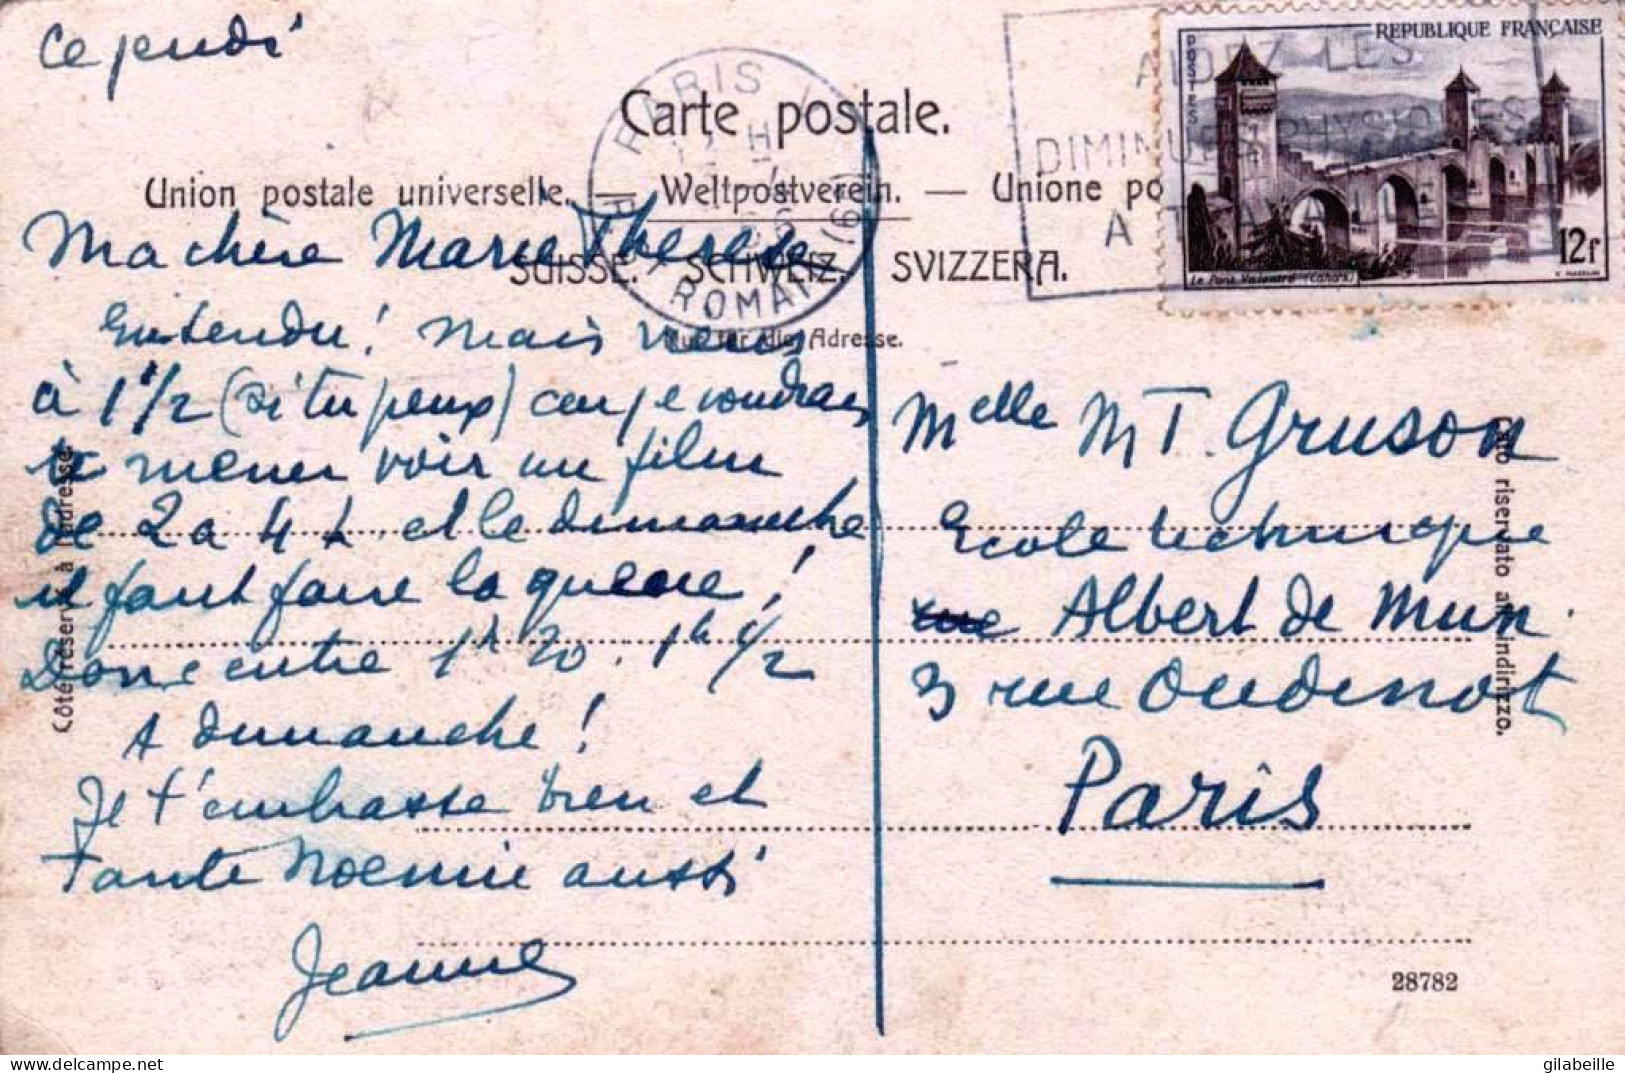 Ce jeudi
REPUBLIQUE FRANÇAISE
POSTES
12f
Le Pont Valentré (Cahors)
AIDEZ LES
DIMINUES PHYSIQUES
A TRAVAILLER
PARIS
Carte postale.
Union postale universelle. — Weltpostverein. — Unione po
SUISSE. SCHWEIZ. SVIZZERA.
Nur für die Adresse.
Côté réservé à l'adresse.
Lato riservato all'indirizzo.
Ma chère Marie Thérèse
Entendu! Mais viens
à 1 1/2 (si tu peux) car je voudrais
te mener voir un film
de 2 a 4 h et le dimanche
il faut faire la queue!
Donc entre 1h 20. 1h 1/2
A dimanche!
Je t'embrasse bien et
tante Noemie aussi
Jeanne
Melle MT. Gruson
Ecole technique
rue Albert de Mun.
3 rue Oudinot
Paris
28782
gilabeille